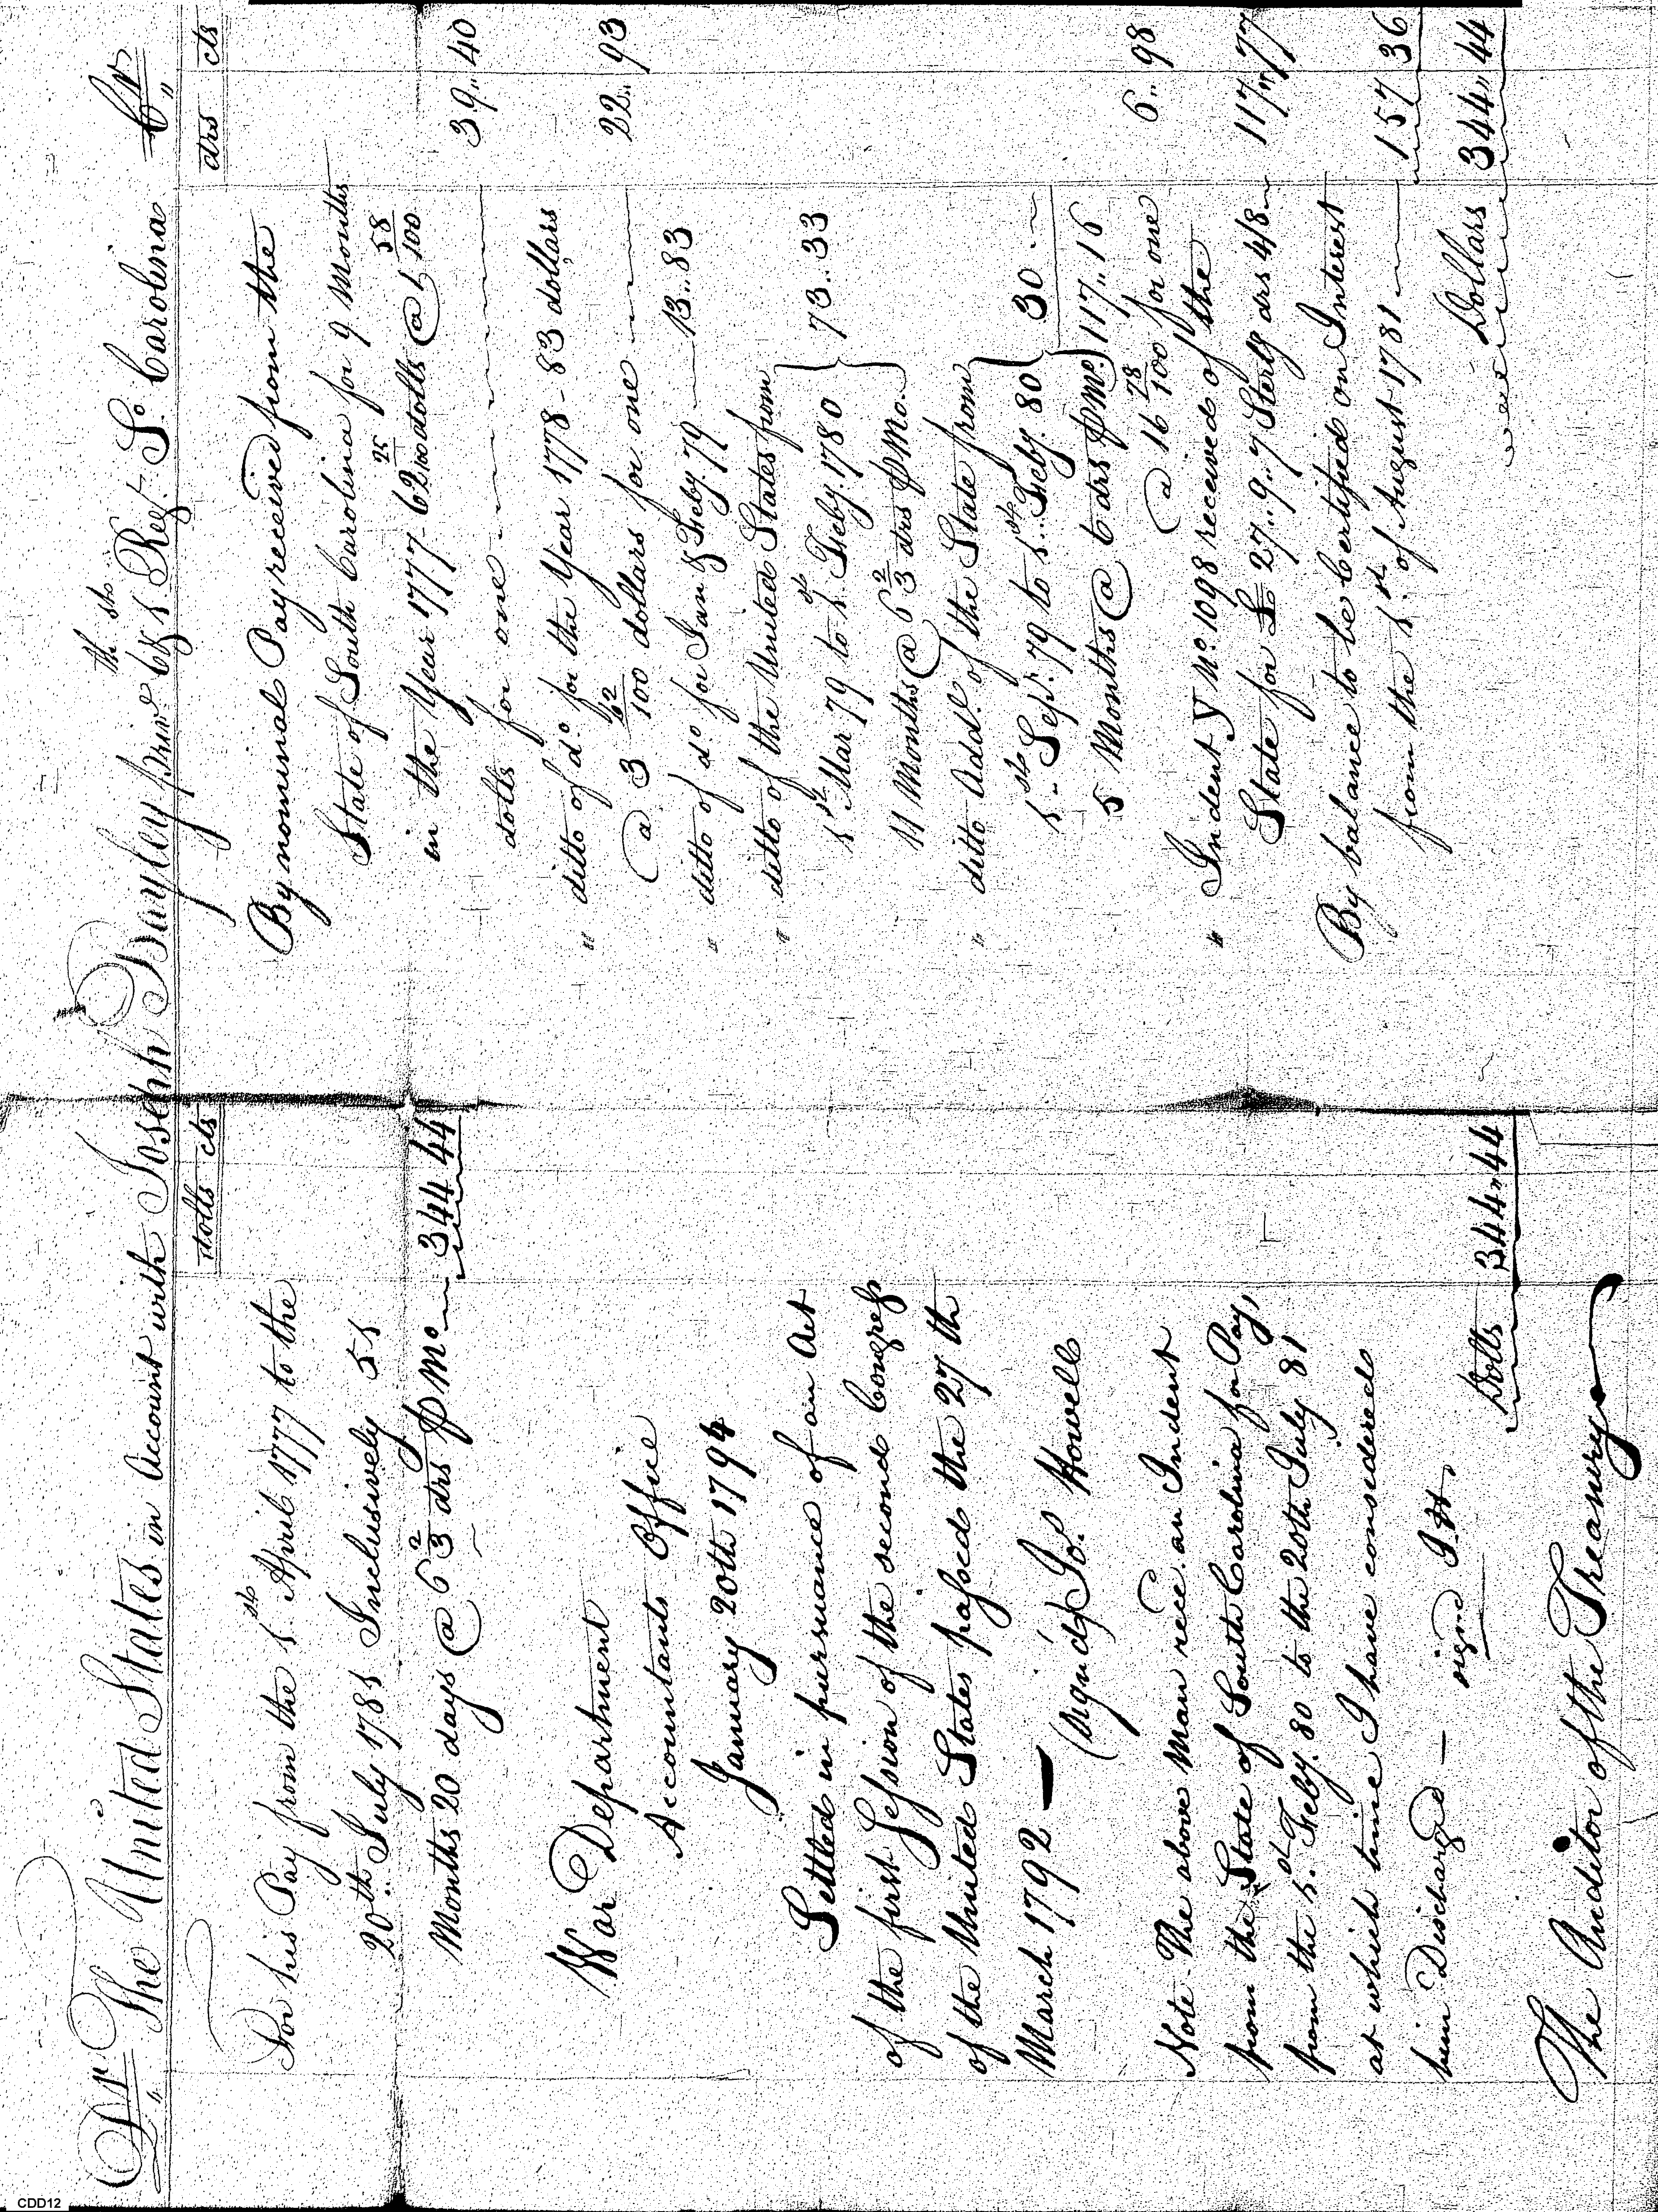 Dr. The United States in Account with Joseph Bayley priv.e 6th & 1st Regt. So. Carolina Cr.
dolls cts
For his Pay from the 1st April 1777 to the
20th July 1781 Inclusively 51
Months 20 days @ 6 2/3 drs ⅌ Mo. 344 44
War Department
Accountants Office
January 20th 1794
Settled in pursuance of an Act
of the first Session of the second Congress
of the United States passed the 27th
March 1792 —
(signed) Jos. Howell
Note. The above Man rece. an Indent
from the State of South Carolina for Pay,
from the 1st Feby. 80 to the 20th July 81
at which time I have considered
him Discharged —
signd J.H.
Dolls 344.44
The Auditor of the Treasury
drs cts
By nominal Pay received from the
State of South Carolina for 9 Months
in the Year 1777 - 62 25/100 dolls @ 1 58/100
dolls for one 39.. 40
" ditto of do. for the Year 1778 - 83 dollars
@ 3 62/100 dollars for one 22.. 93
" ditto of do. for Jan & Feby. 79 13.. 83
" ditto of the United States from
1st Mar 79 to 1st Feby. 1780 } 73.. 33
11 Months @ 6 2/3 drs ⅌ Mo.
" ditto Addl. of the State from
1st Sept. 79 to 1st Feby. 80 } 30 ..
5 Months @ 6 drs ⅌ Mo. } 117.. 16
@ 16 78/100 for one 6.. 98
" Indent Y No. 1098 received of the
State for £ 27.. 9.. 7 Sterlg drs 4/8 117.. 77
By balance to be Certified on Interest
from the 1st of August 1781 157 36
Dollars 344.. 44
CDD12